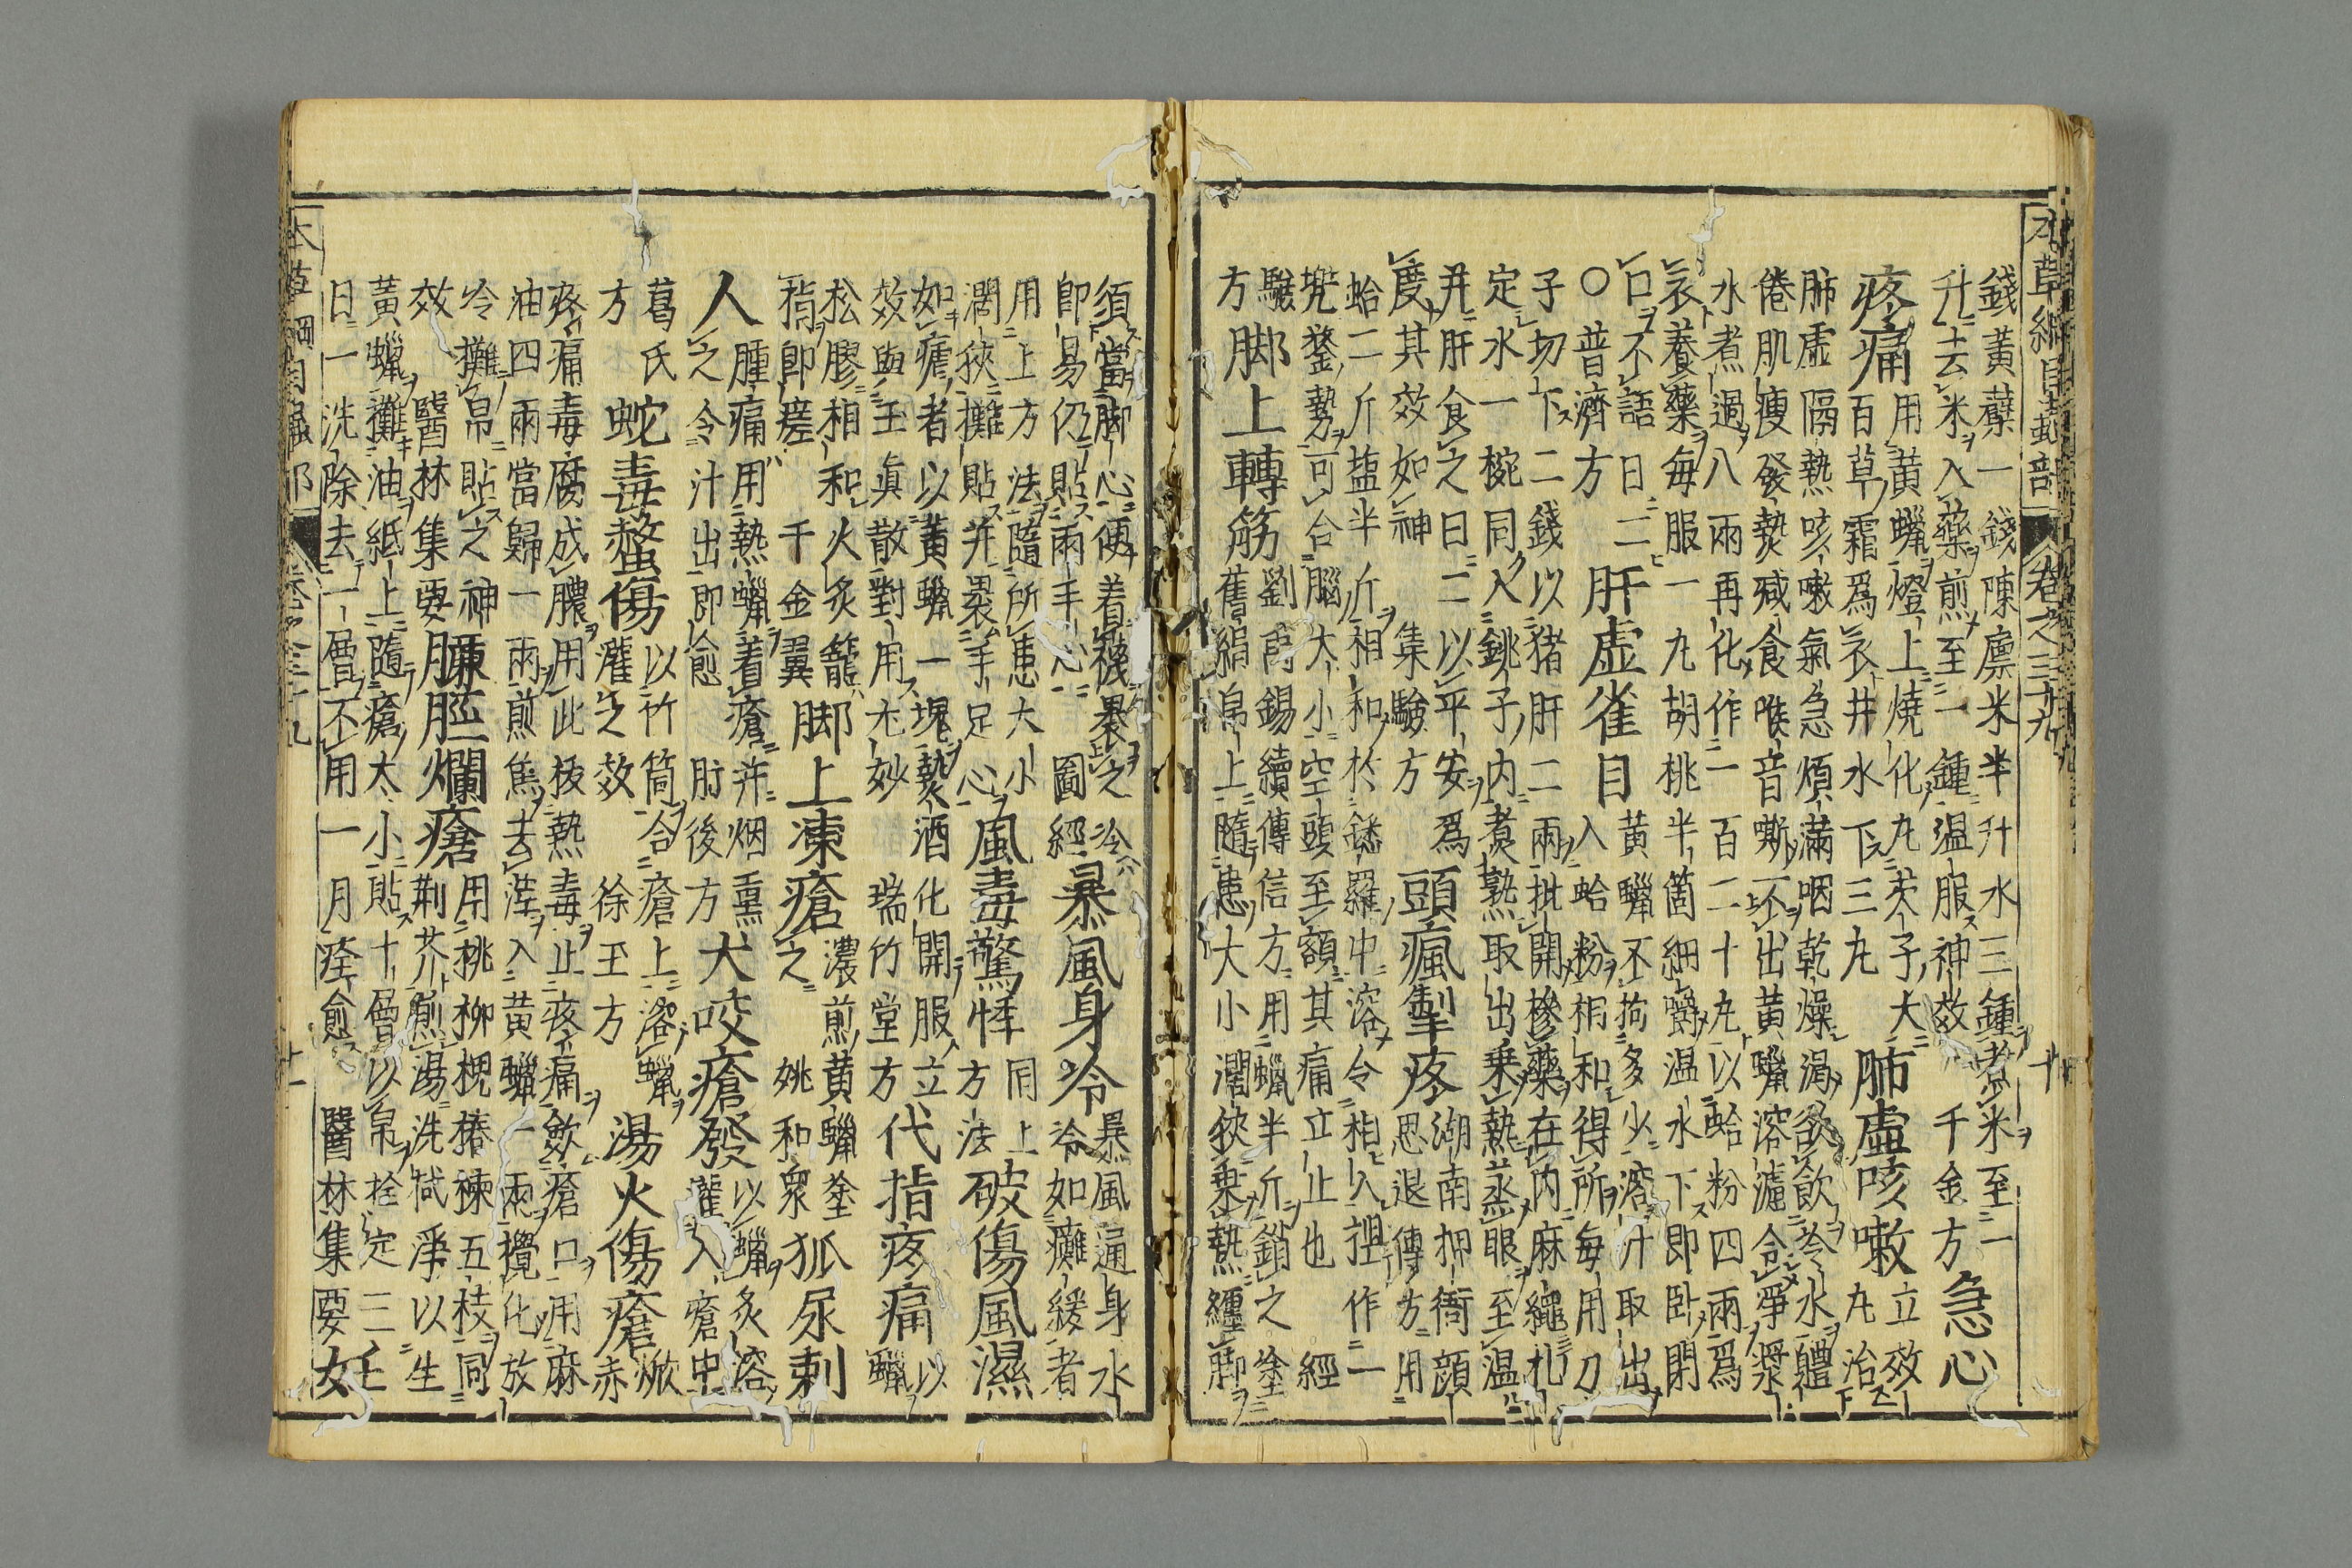 本草綱目蟲部　卷之三十九　十
錢黃蘗一錢陳廪米半升水三鍾煮米至一
升去米入藥煎至一鍾温服神效 千金方 急心
疼痛 用黃蠟燈上燒化丸芡子大
百草霜爲衣井水下三丸 肺虛咳嗽 立效丸治
肺虛隔熱咳嗽氣急煩滿咽乾燥渴欲飲冷水體
倦肌瘦發熱减食喉音嘶不出黃蠟溶濾令淨漿
水煮過八兩再化作一百二十丸以蛤粉四兩爲
衣養藥每服一丸胡桃半箇細嚼温水下即臥閉
口不語日二
〇普濟方 肝虛雀目 黃蠟不拘多少溶汁取出
入蛤粉相和得所每用刀
子切下二錢以猪肝二兩批開摻藥在内麻繩扎
定水一椀同入銚子内煮熟取出乘熱蒸眼至温
并肝食之日二以平安爲
度其效如神 集驗方 頭瘋掣疼 湖南押衙顔
思退傳方用
蛤二斤塩半斤相和於鏍羅中溶令相入捏作一
兠鍪勢可合腦大小空頭至額其痛立止也 經
驗
方 脚上轉筋 劉禹錫續傳信方用蠟半斤銷之塗
舊絹帛上隨患大小濶狹乘熱纏脚
須當脚心便着襪裹之冷
即易仍貼兩手心 圖經 暴風身冷 暴風通身水
冷如癱緩者
用上方法隨所患大小
濶狹攤貼并裹手足心 風毒驚悸 同上
方法 破傷風濕
如瘧者以黃蠟一塊熱酒化開服立
效與玉真散對用尤妙 瑞竹堂方 代指疼痛 以
蠟
松膠相和火炙籠
指即瘥 千金翼 脚上凍瘡 濃煎黃蠟塗
之 姚和衆 狐尿刺
人 腫痛用熱蠟着瘡并烟熏
之令汁出即愈 肘後方 犬咬瘡發 以蠟炙溶
灌入瘡中
葛氏
方 蛇毒螫傷 以竹筒合瘡上溶蠟
灌之效 徐王方 湯火傷瘡 焮
赤
疼痛毒腐成膿用此拔熱毒止疼痛歛瘡口用麻
油四兩當歸一兩煎焦去滓入黃蠟一兩攪化放
冷攤帛貼之神
效 醫林集要 臁脛爛瘡 用桃柳槐椿楝五枝同
荆芥煎湯洗拭淨以生
黃蠟攤油紙上隨瘡大小貼十層以帛拴定三
日一洗除去一層不用一月痊愈 醫林集要 妊